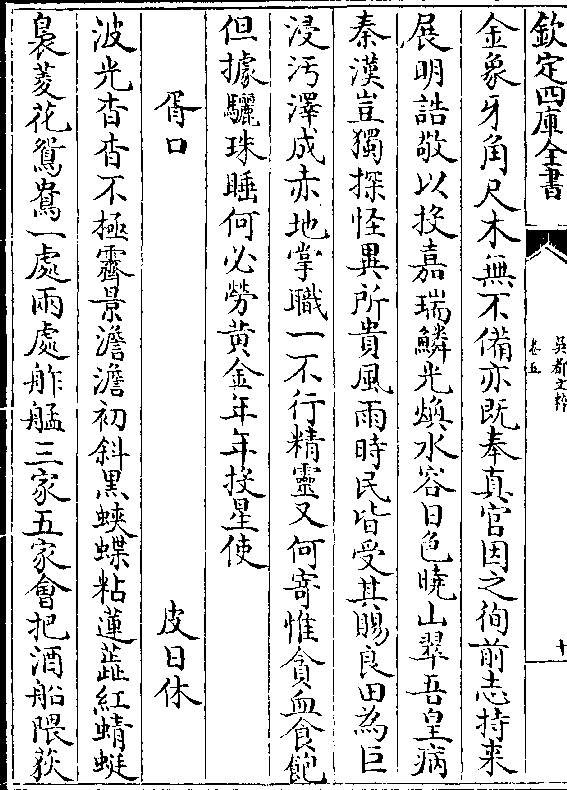 欽定四庫全書
吳都文粹
卷五
十
金象牙角尺木無不備亦既奉真官因之徇前志持来
展明誥敬以投嘉瑞鱗光焕水容日色曉山翠吾皇病
秦漢豈獨探怪異所貴風雨時民皆受其賜良田為巨
浸汚澤成赤地掌職一不行精靈又何寄惟貪血食飽
但據驪珠睡何必勞黄金年年投星使
胥口　皮日休
波光杳杳不極霽景澹澹初斜黒蛺蝶粘蓮蘂紅蜻蜓
裊菱花鴛鴦一處兩處舴艋三家五家會把酒船隈荻